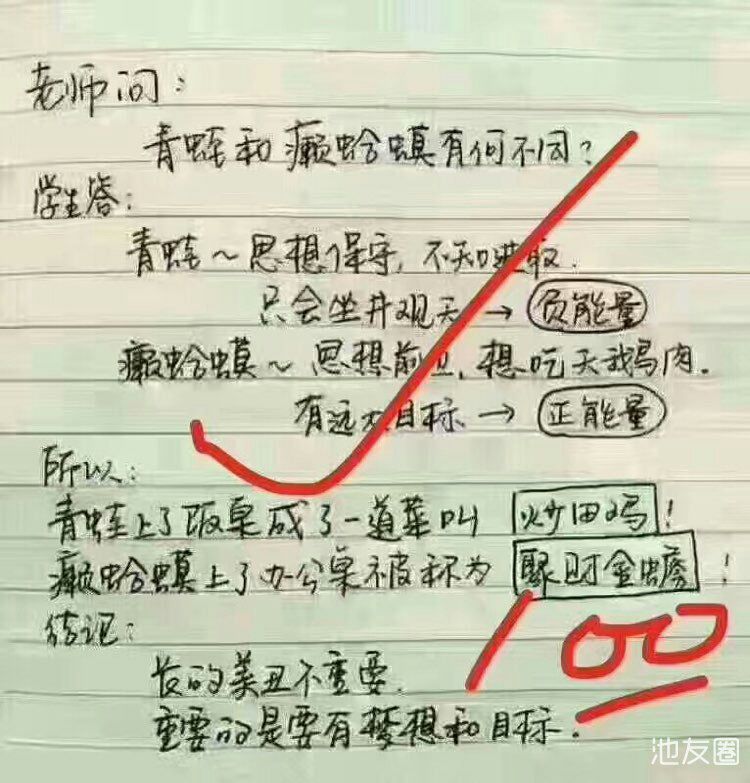 老师问：
青蛙和癞蛤蟆有何不同？
学生答：
青蛙～思想保守，不知进取．
只会坐井观天→负能量
癞蛤蟆～思想前卫，想吃天鹅肉．
有远大目标→正能量
所以：
青蛙上了饭桌成了一道菜叫 炒田鸡！
癞蛤蟆上了办公桌被称为 聚财金蟾！
结论：
长的美丑不重要．
重要的是要有梦想和目标．
100
池友圈